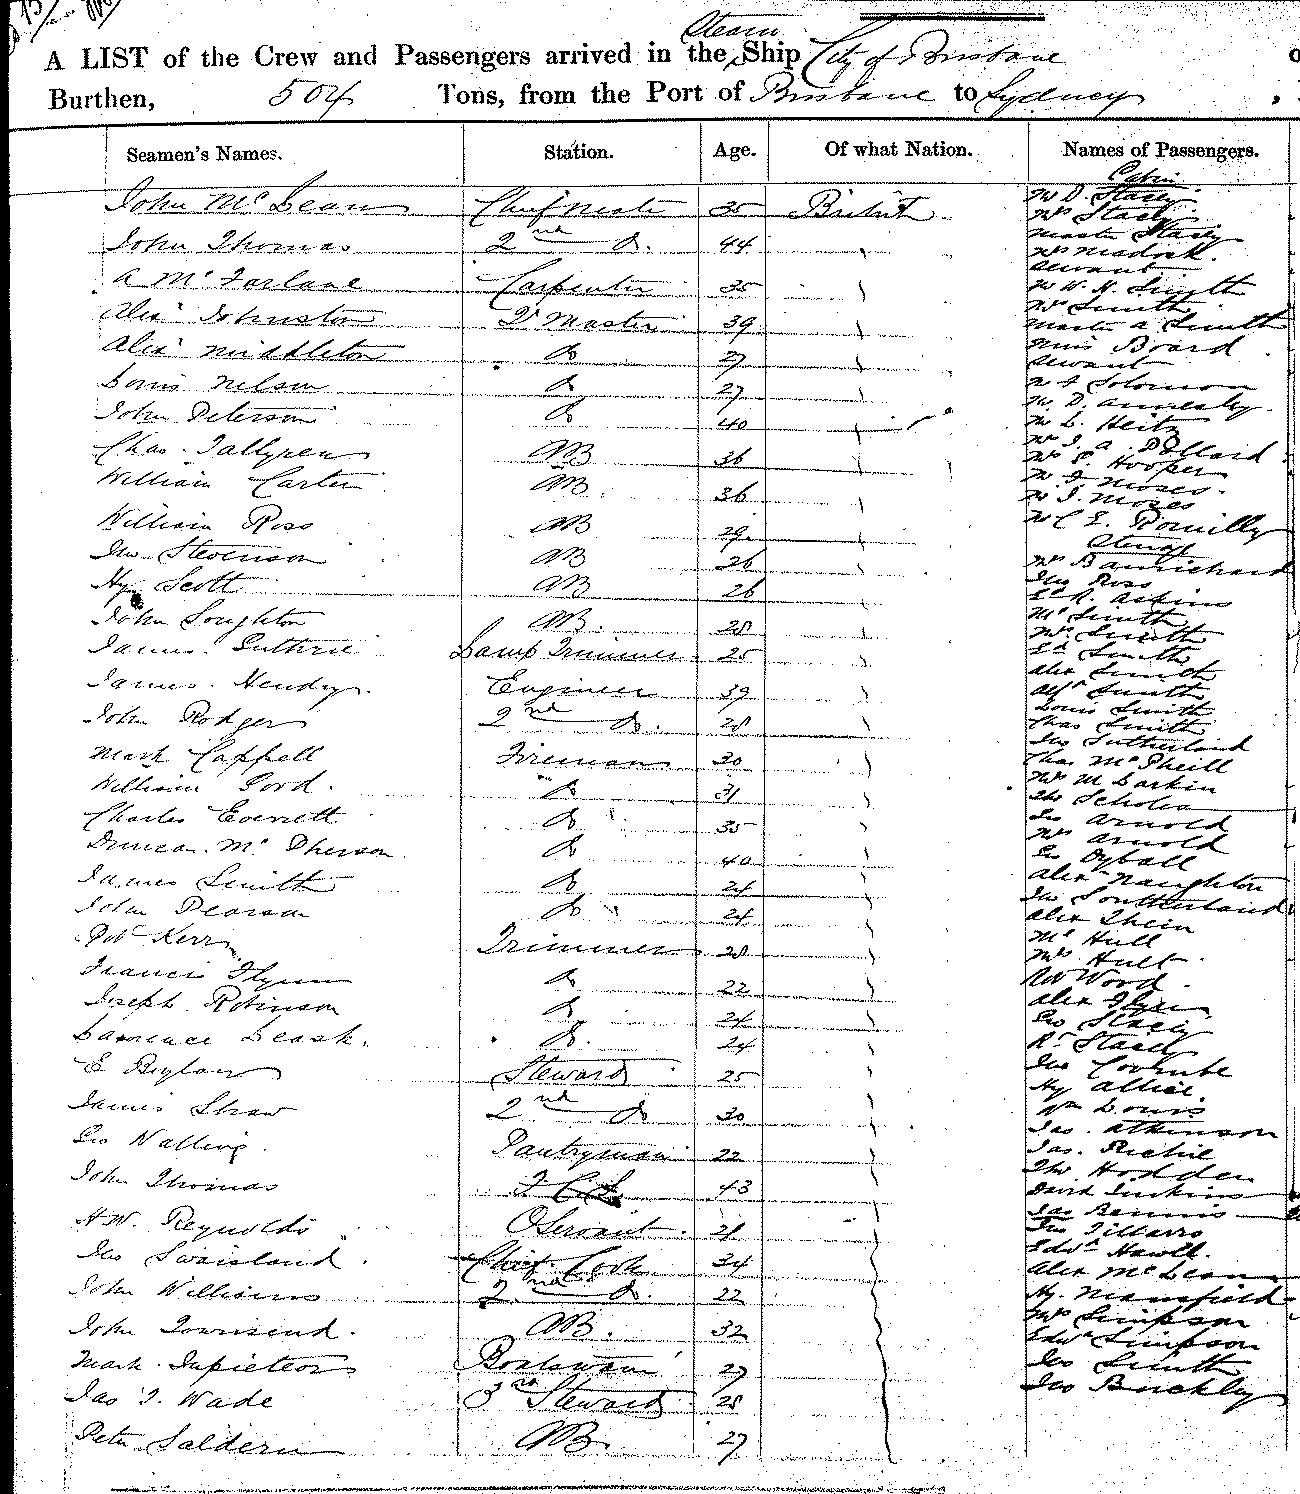 A LIST of the Crew and Passengers arrived in the Steam Ship City of Brisbane
Burthen, 504 Tons, from the Port of Brisbane to Sydney,
Seamen's Names. Station. Age. Of what Nation. Names of Passengers.
Cabin
John McLean Chief mate 35 British
John Thomas 2nd Do. 44
A McFarlane Carpenter 35
Alex Johnston Qr Master 39
Alex Middleton Do 27
Louis Nelson Do 27
John Peterson Do 40
Chas. Tallgren AB 36
William Carter AB 36
William Ross AB 29
Jno Stevenson AB 26
Hy Scott AB 26
John Loughton AB. 28
James Guthrie Lamp Trimmer 25
James Hendry Engineer 39
John Rodger 2nd Do. 28
Mark Cappell Fireman 30
William Gord. Do 31
Charles Everett Do 35
Duncan McPherson Do 40
James Smith Do 24
John Pearson Do 24
Robt Kerr Trimmer 28
Francis Flynn Do 22
Joseph Robinson Do 24
Lawrence Leask. Do. 24
E Steward 25
James Shaw 2nd Do 30
Geo Pantryman 22
John Thomas 43
H.W. Reynolds Servant 21
Jno Swaisland Chief Cook 34
John Williams 2nd Do. 22
John Townsend. AB. 32
Mark Boatswain 27
Jas J. Wade 3rd Steward 28
Peter AB 27
Mr D. Stacey
Mrs Stacey
Master Stacey
Mrs
Servant
Mr W. H. Smith
Mrs Smith
Master A Smith
Miss Board
Servant
Mr J Solomon
Mr D. Annesley
Mr L. Heitz
Mr J. A. Pollard
Mr P. Hooper
Mr J Moses.
Mr J. Moses
Mr C E. Romilly
Steerage
Mrs
Jno Ross
R. Askins
Mr Smith
Mrs Smith
Ed Smith
Alex Smith
Alfd Smith
Louis Smith
Chas Smith
Jno Sutherland
Chas McPheill
Mrs M Larkin
Tho Scholes
Geo Arnold
Mrs Arnold
Geo Dyball
Alex Naughton
Jno Southerland
Alex Thein
Mr Hull
Mrs Hull
Wood
Alex Flynn
Geo Stacey
R. Stacey
Jno
Hy
Wm Louis
Jas. Atkinson
Jas. Richie
Tho Hodden
David Jenkins
Jas Bennis
Jno
Edwd Newell.
Alex McLean
Hy. Mansfield
Mrs Simpson
Edwd Simpson
Jno Smith
Jno Buckley